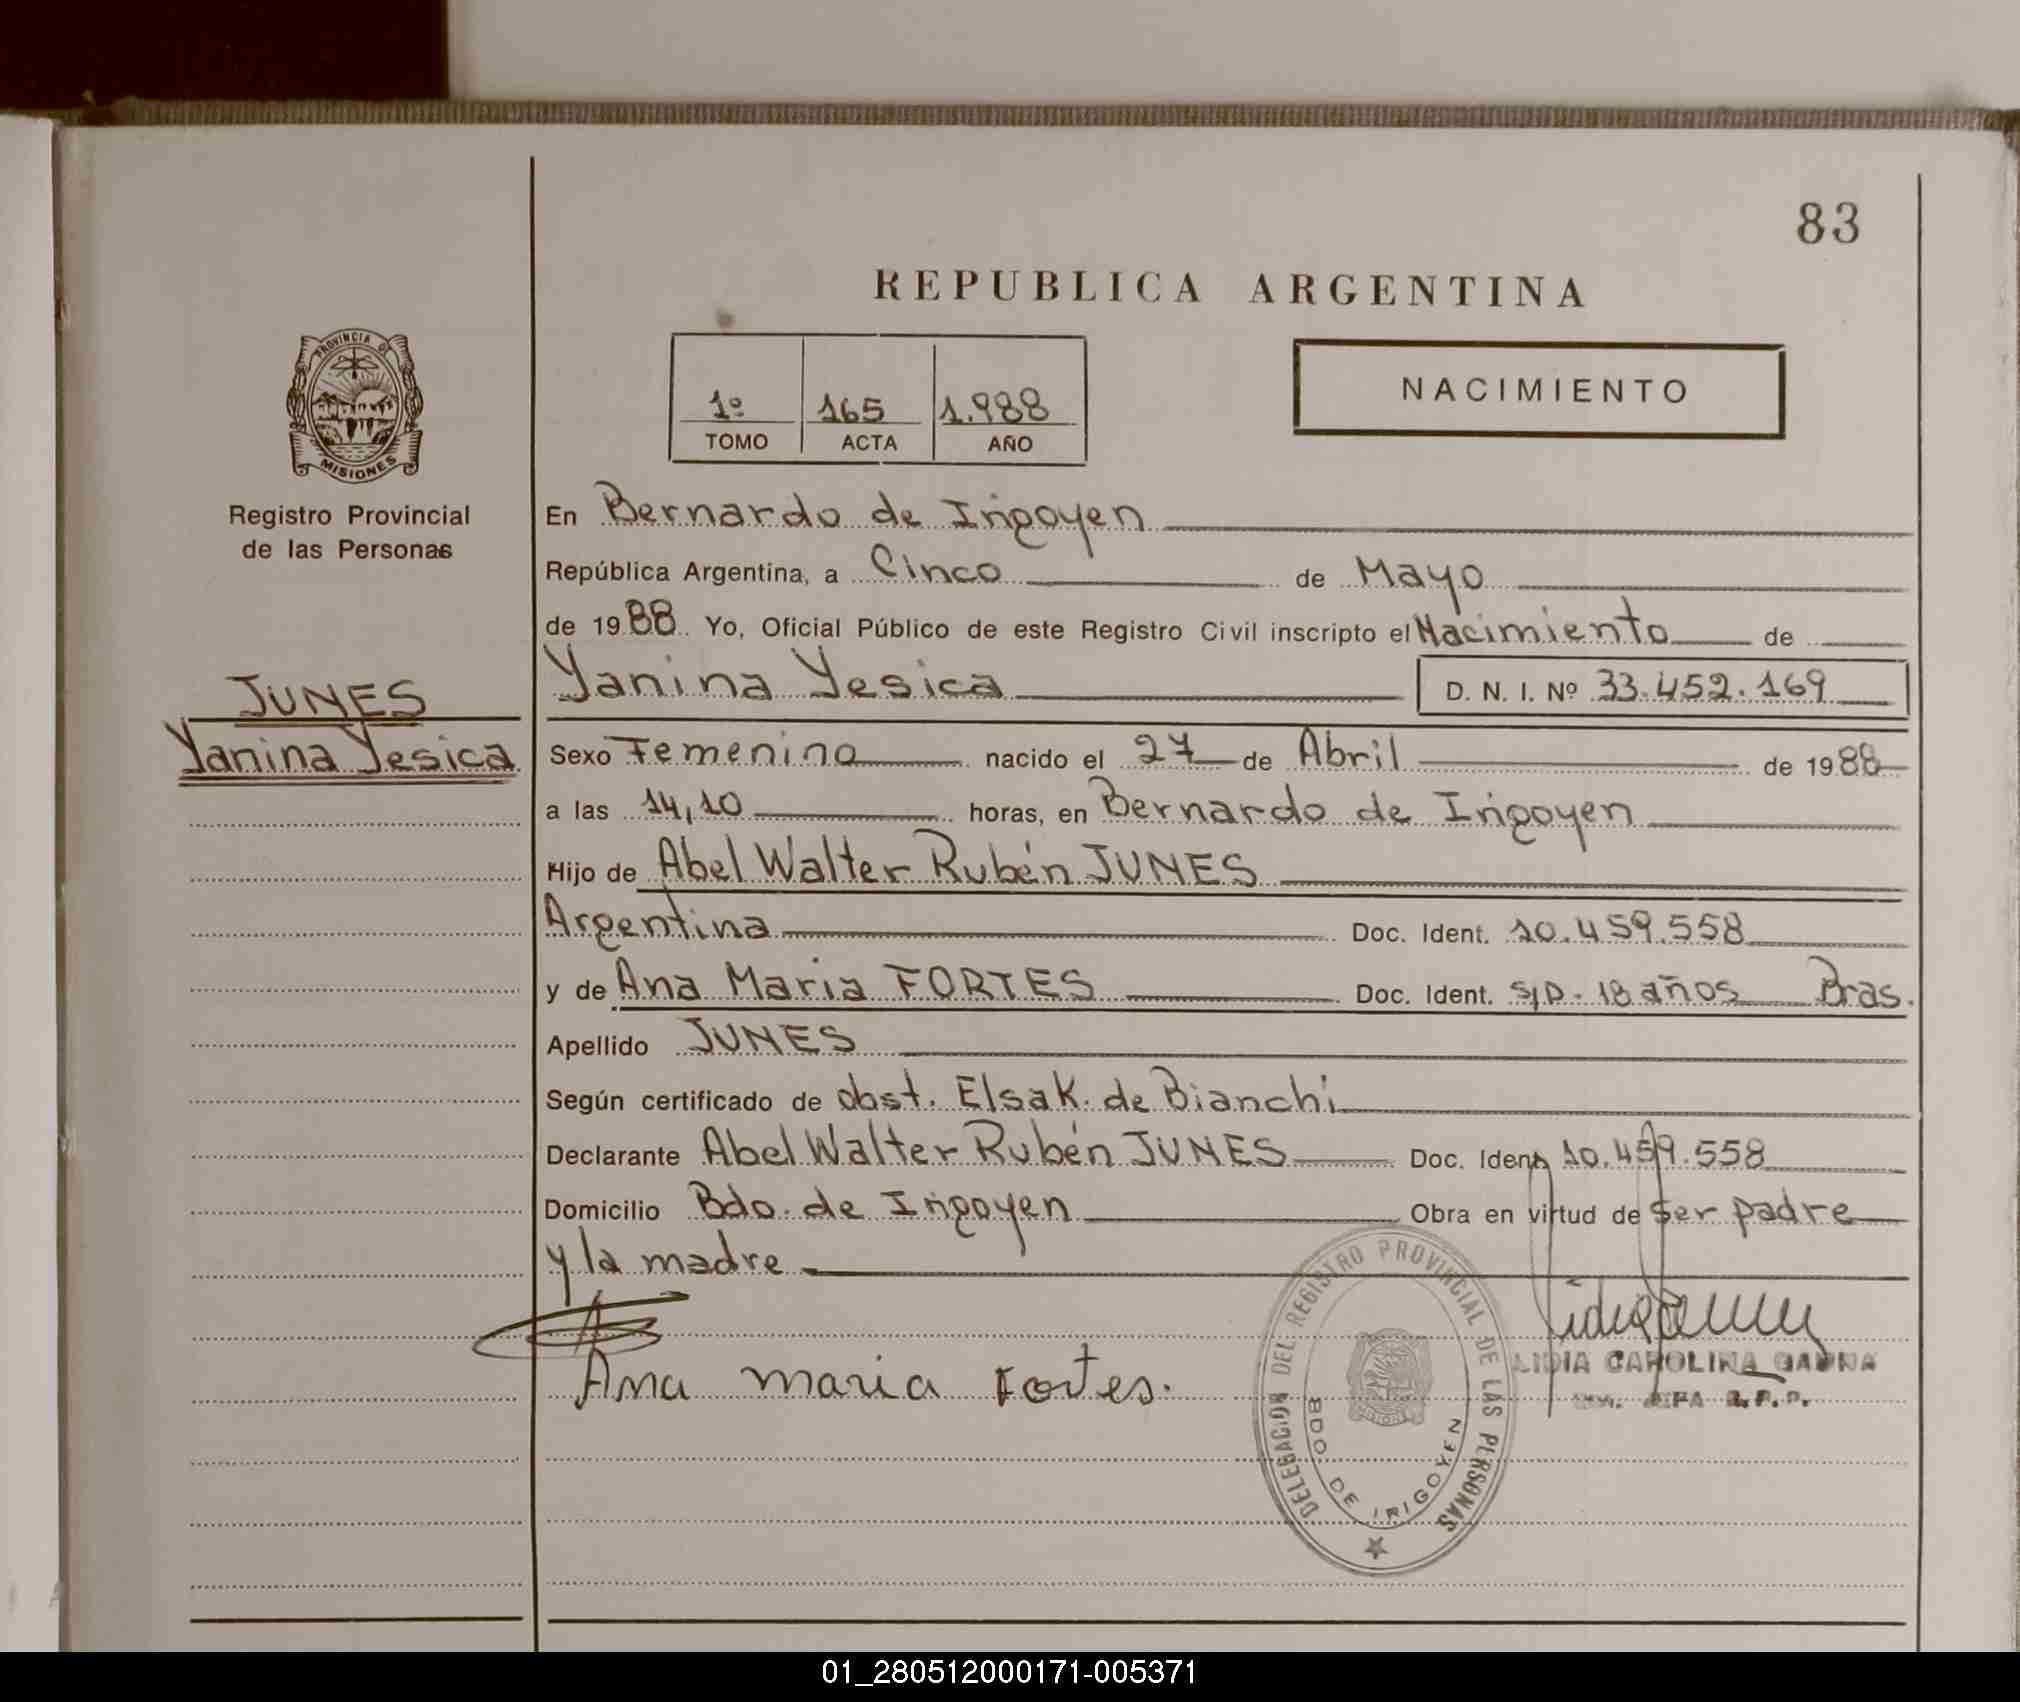 83
REPUBLICA ARGENTINA
PROVINCIA DE
MISIONES
Registro Provincial
de las Personas
1º 165 1.988
TOMO ACTA AÑO
NACIMIENTO
En Bernardo de Irigoyen
República Argentina, a Cinco de Mayo
de 1988. Yo, Oficial Público de este Registro Civil inscripto el Nacimiento de
JUNES
Yanina Yesica
Yanina Yesica D. N. I. Nº 33.452.169
Sexo Femenino nacido el 27 de Abril de 1988
a las 14,10 horas, en Bernardo de Irigoyen
Hijo de Abel Walter Rubén JUNES
Argentina Doc. Ident. 10.459.558
y de Ana Maria FORTES Doc. Ident. S/D - 18 años Bras.
Apellido JUNES
Según certificado de obst. Elsa K. de Bianchi
Declarante Abel Walter Rubén JUNES Doc. Ident. 10.459.558
Domicilio Bdo. de Irigoyen Obra en virtud de ser padre
y la madre
Ana maria Fortes.
DELEGACION DEL REGISTRO PROVINCIAL DE LAS PERSONAS
MISIONES
BDO DE IRIGOYEN
LIDIA CAROLINA GAUNA
R.P.P.
01_280512000171-005371